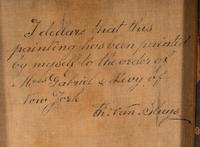 I declare that this
painting has been painted
by myself to the order of
Mess Gabriel & Levy of
New York
Th. van Sluys